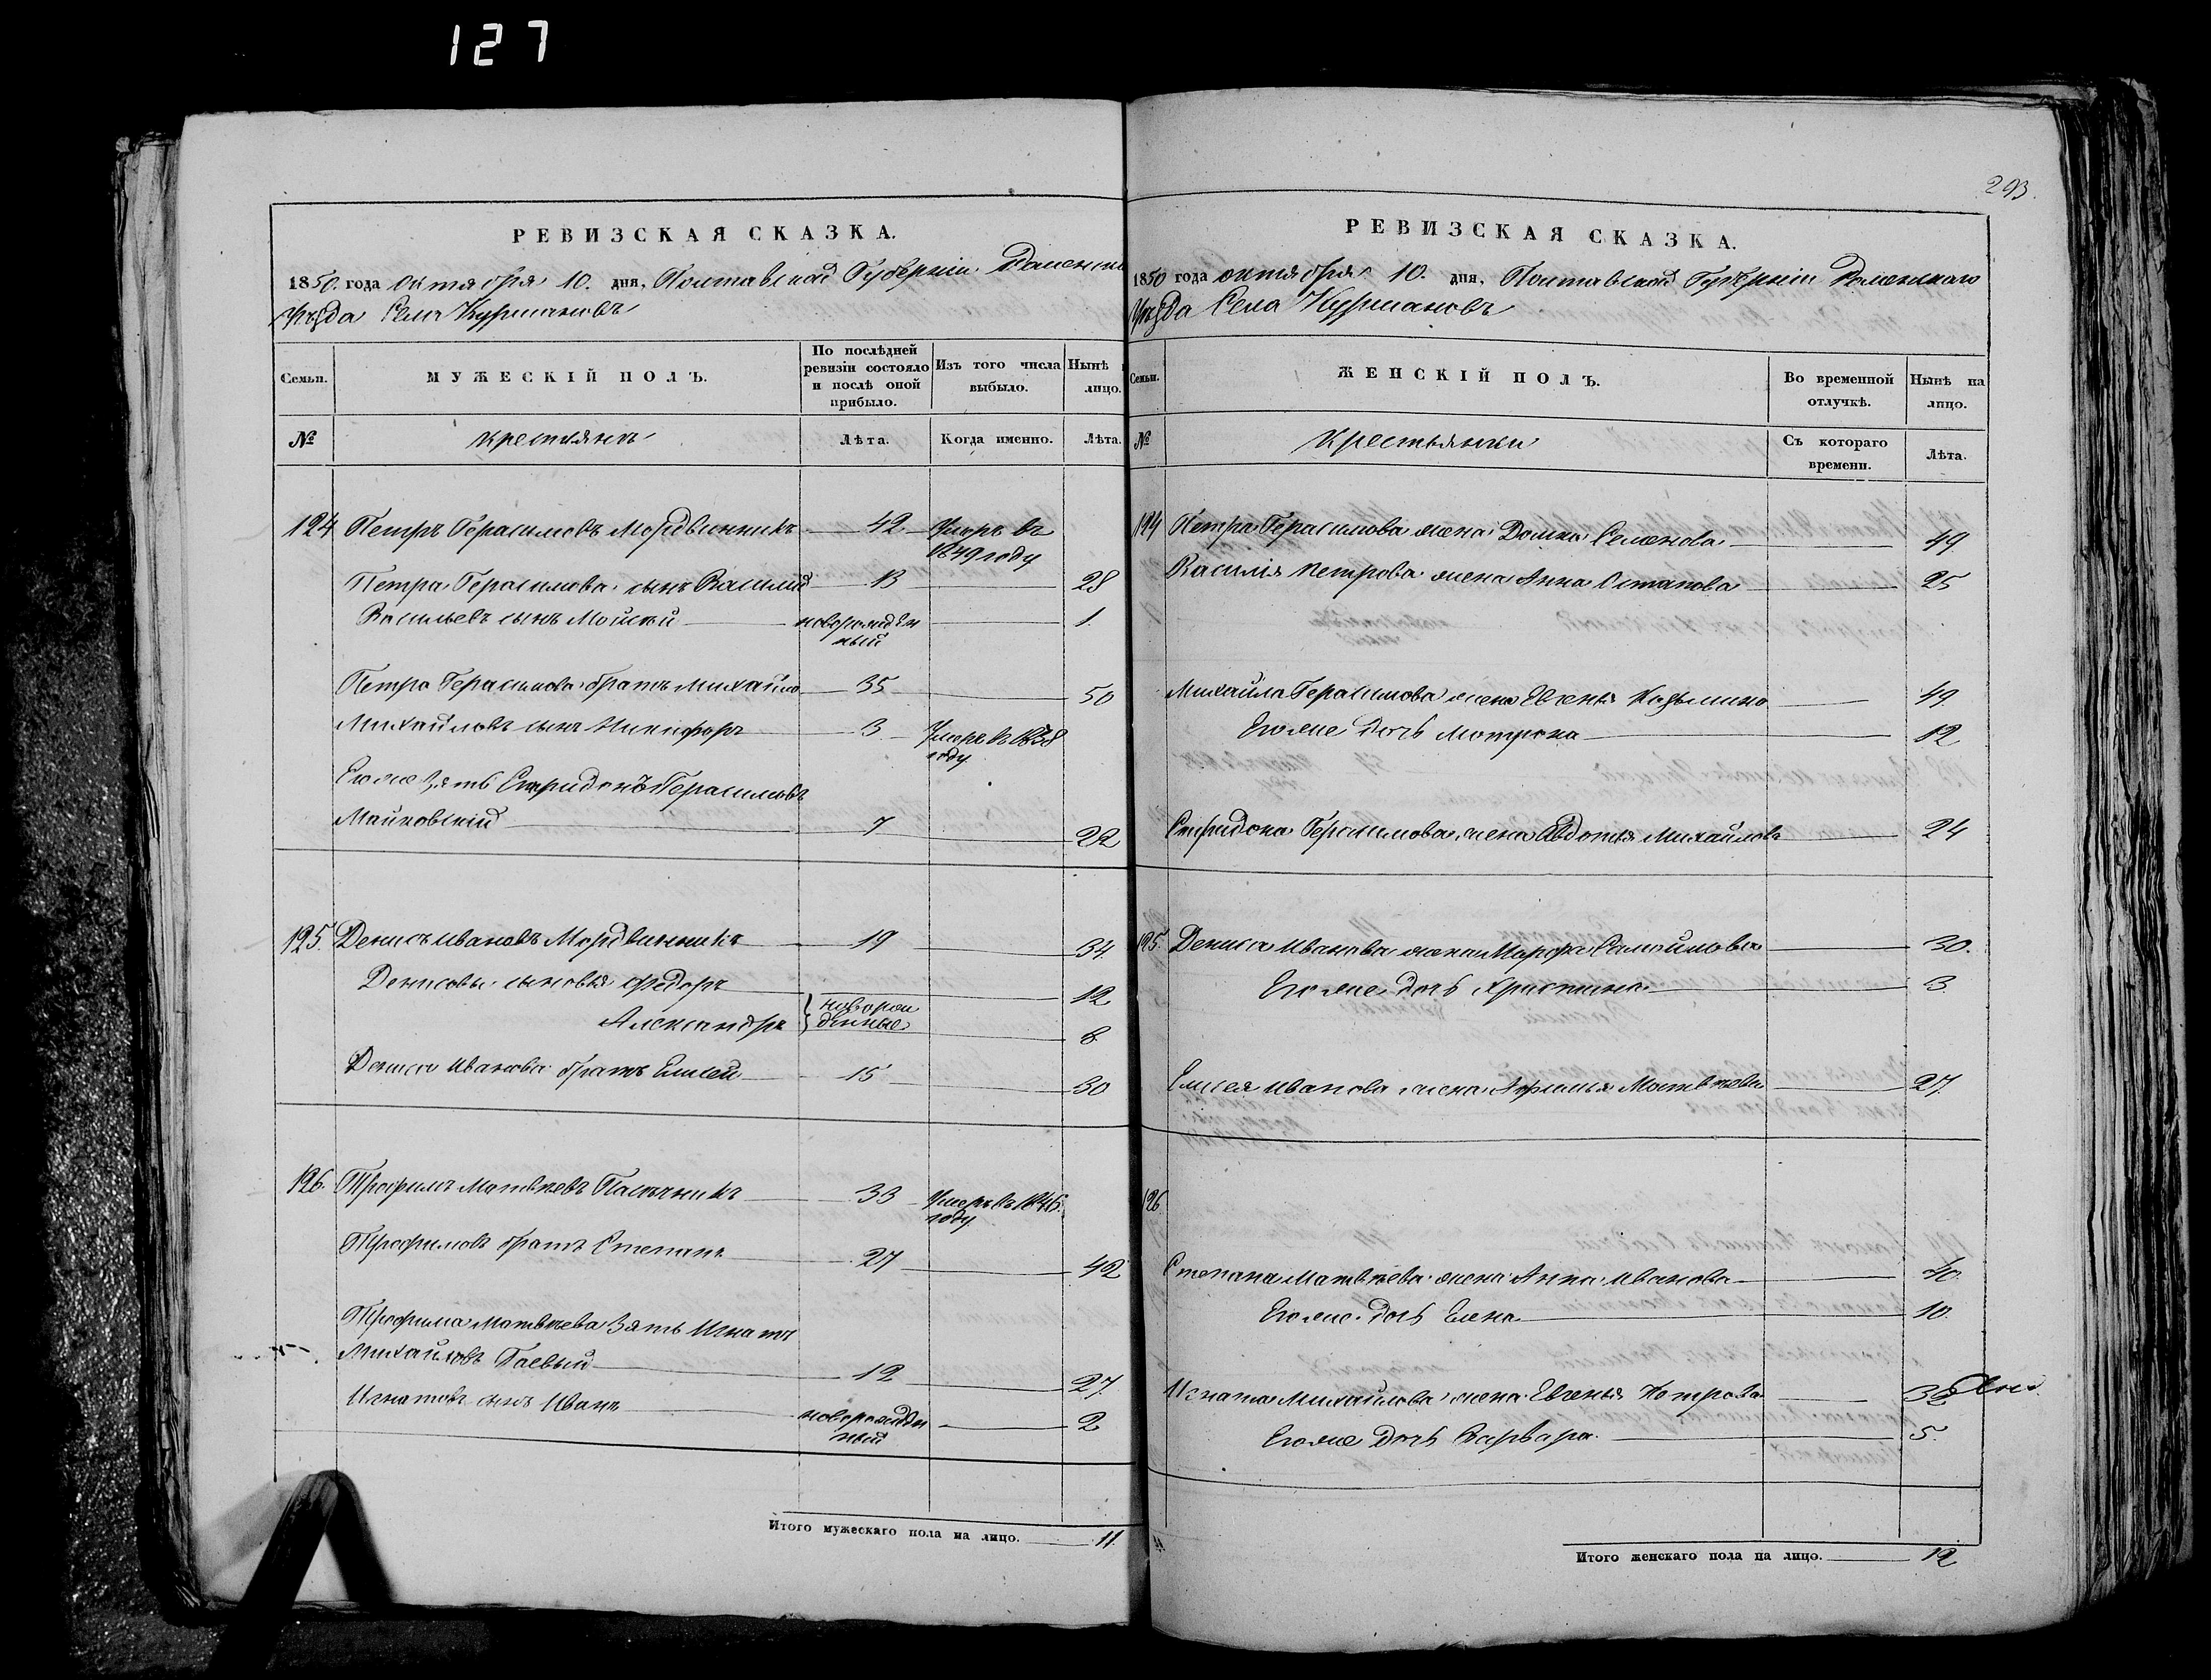 127
293.
РЕВИЗСКАЯ СКАЗКА.
1850. года октября 10. дня, Полтавской Губерніи Роменска
Уѣзда Села Курмановъ
Семьи.
МУЖЕСКІЙ ПОЛЪ.
По послѣдней ревизіи состояло и послѣ оной прибыло.
Изъ того числа выбыло.
Нынѣ
лицо.
№
Крестьянъ
Лѣта.
Когда именно.
Лѣта.
124 Петръ Герасимовъ Мордвинникъ 42 Умеръ въ
1849 году
Петра Герасимова сынъ Василій 13 28
Васильевъ сынъ Мойсей новорожден 1.
ный
Петра Герасимова братъ Михайло 35 50
Михайловъ сынъ Никифоръ 3 Умеръ въ 1838
году
Его же зять Спиридонъ Герасимовъ
7 22
125. Денисъ Ивановъ Мордвинникъ 19 34.
Денисовы сыновья Федоръ 12
Александръ новорож
денные 8
Дениса Иванова братъ Елисей 15 30
126. Трофимъ Матвѣевъ Пасѣчникъ 33 Умеръ въ 1846.
году
Трофимовъ братъ Степанъ 27 42
Трофима Матвѣева зять Игнатъ
Михайловъ Гаевый 12 27.
Игнатовъ сынъ Иванъ новорожден 2
ный
Итого мужескаго пола на лицо. 11.
РЕВИЗСКАЯ СКАЗКА.
1850 года октября 10. дня, Полтавской Губерніи Роменскаго
Уѣзда Села Курмановъ
Семьи.
ЖЕНСКІЙ ПОЛЪ.
Во временной отлучкѣ.
Нынѣ на лицо.
№
Крестьянки
Съ котораго времени.
Лѣта.
124 Петра Герасимова жена Домна Семенова 49
Василія Петрова жена Анна Остапова 25
Михайла Герасимова жена Евгенья Козьмина 49.
Его же дочь Мотрона 12
Спиридона Герасимова жена Авдотья Михайлова 24
125. Дениса Иванова жена Марфа Самойлова 30.
Его же дочь Христина 3.
Елисея Иванова жена Матвѣева 27.
126.
Степана Матвѣева жена Анна Иванова 40.
Его же дочь Елена 10.
Игната Михайлова жена Евгенья Петрова 32
Его же дочь Варвара. 5.
Итого женскаго пола на лицо. 12